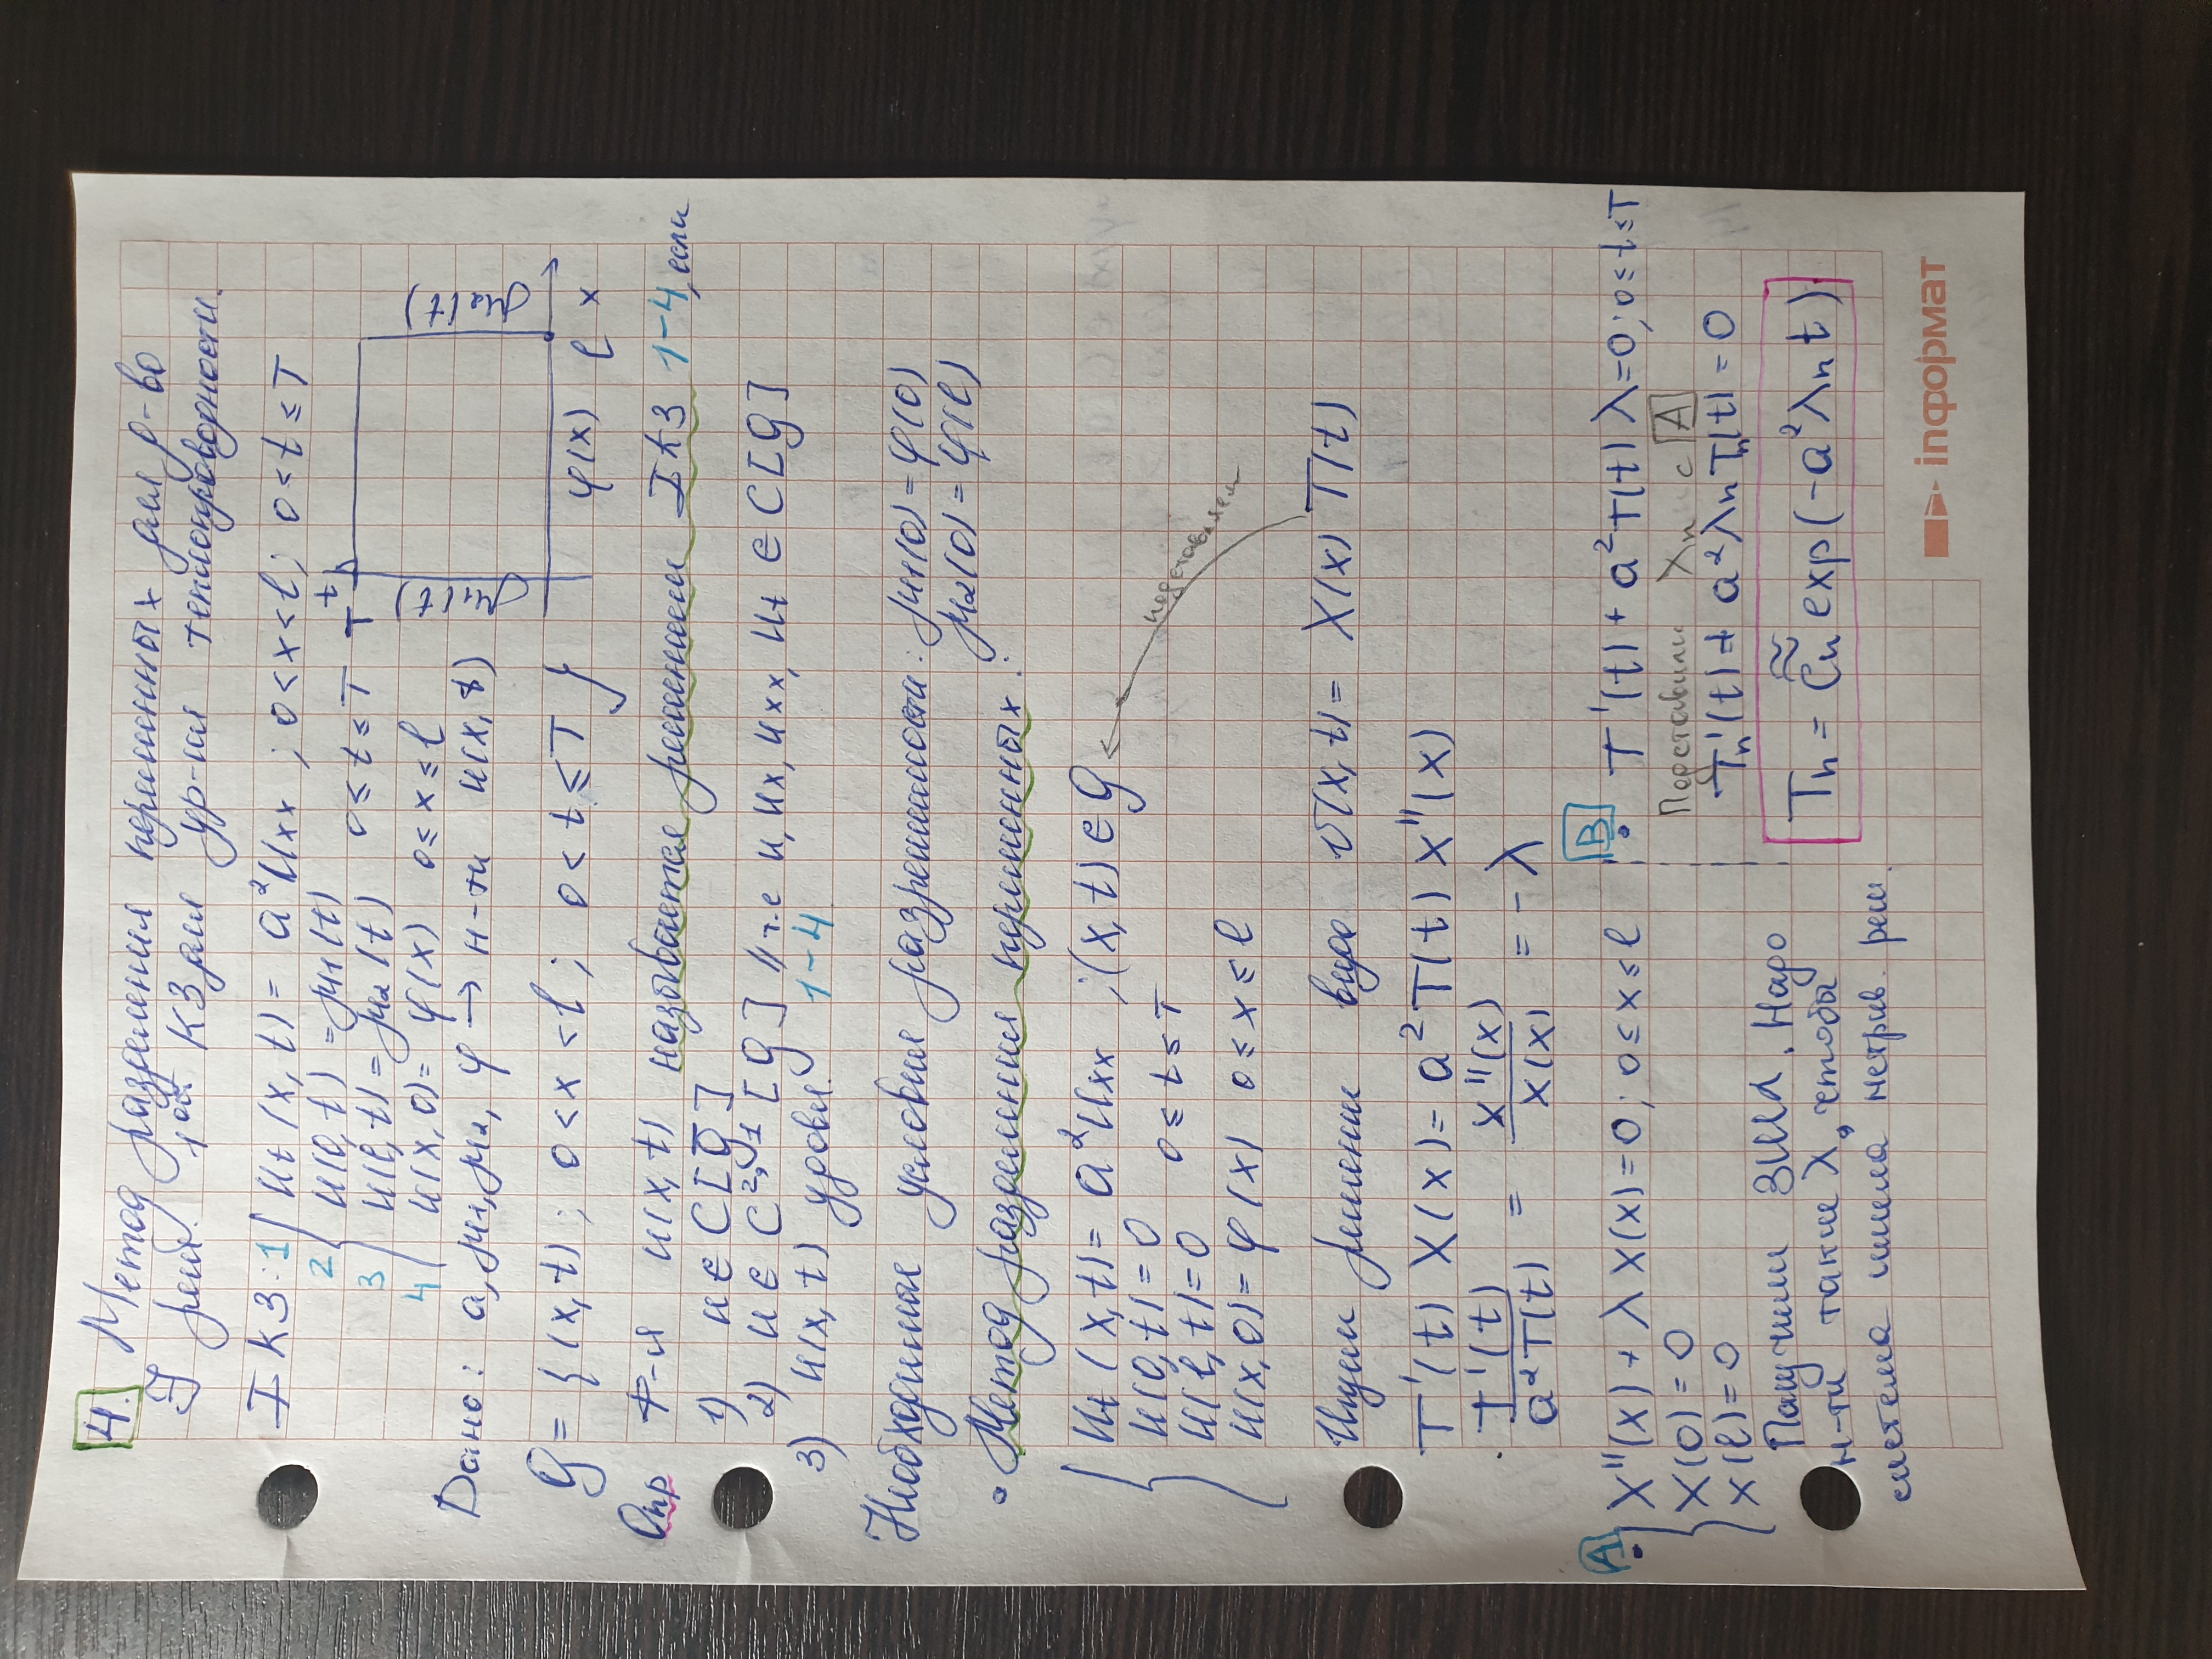 4. Метод разделения переменных для д-во
∃ реш. 1ой КЗ для ур-ия теплопроводности.
I КЗ: 1 { ut(x,t) = a²uxx ; 0<x<l; 0<t≤T
2 u(0,t) = μ1(t)
3 u(l,t) = μ2(t) 0≤t≤T
4 u(x,0) = φ(x) 0≤x≤l
T t
μ1(t)
μ2(t)
φ(x) l x
Дано: a, μ1, μ2, φ → н-ти u(x,t)
g = { (x,t) ; 0<x<l ; 0<t≤T }
Опр Ф-ия u(x,t) называется решением I КЗ 1-4, если
1) u ∈ C[g̅]
2) u ∈ C²,¹[g] // т.е u, ux, uxx, ut ∈ C[g]
3) u(x,t) удовл. 1-4
Необходимые условия разрешимости: μ1(0) = φ(0)
μ2(0) = φ(l)
Метод разделения переменных:
{ ut(x,t) = a²uxx ; (x,t) ∈ g
u(0,t) = 0
u(l,t) = 0 0≤t≤T
u(x,0) = φ(x) 0≤x≤l
подставляем
Ищем решение вида v(x,t) = X(x)T(t)
T'(t)X(x) = a²T(t)X''(x)
T'(t)/a²T(t) = X''(x)/X(x) = -λ
A { X''(x) + λX(x) = 0; 0≤x≤l
X(0) = 0
X(l) = 0
Получили ЗШЛ. Надо
н-ти такие λ, чтобы
система имела нетрив. реш.
B T'(t) + a²T(t)λ = 0; 0≤t≤T
Подставили λn с A
Tn'(t) + a²λnTn(t) = 0
Tn = C̃n exp(-a²λnt)
inформат